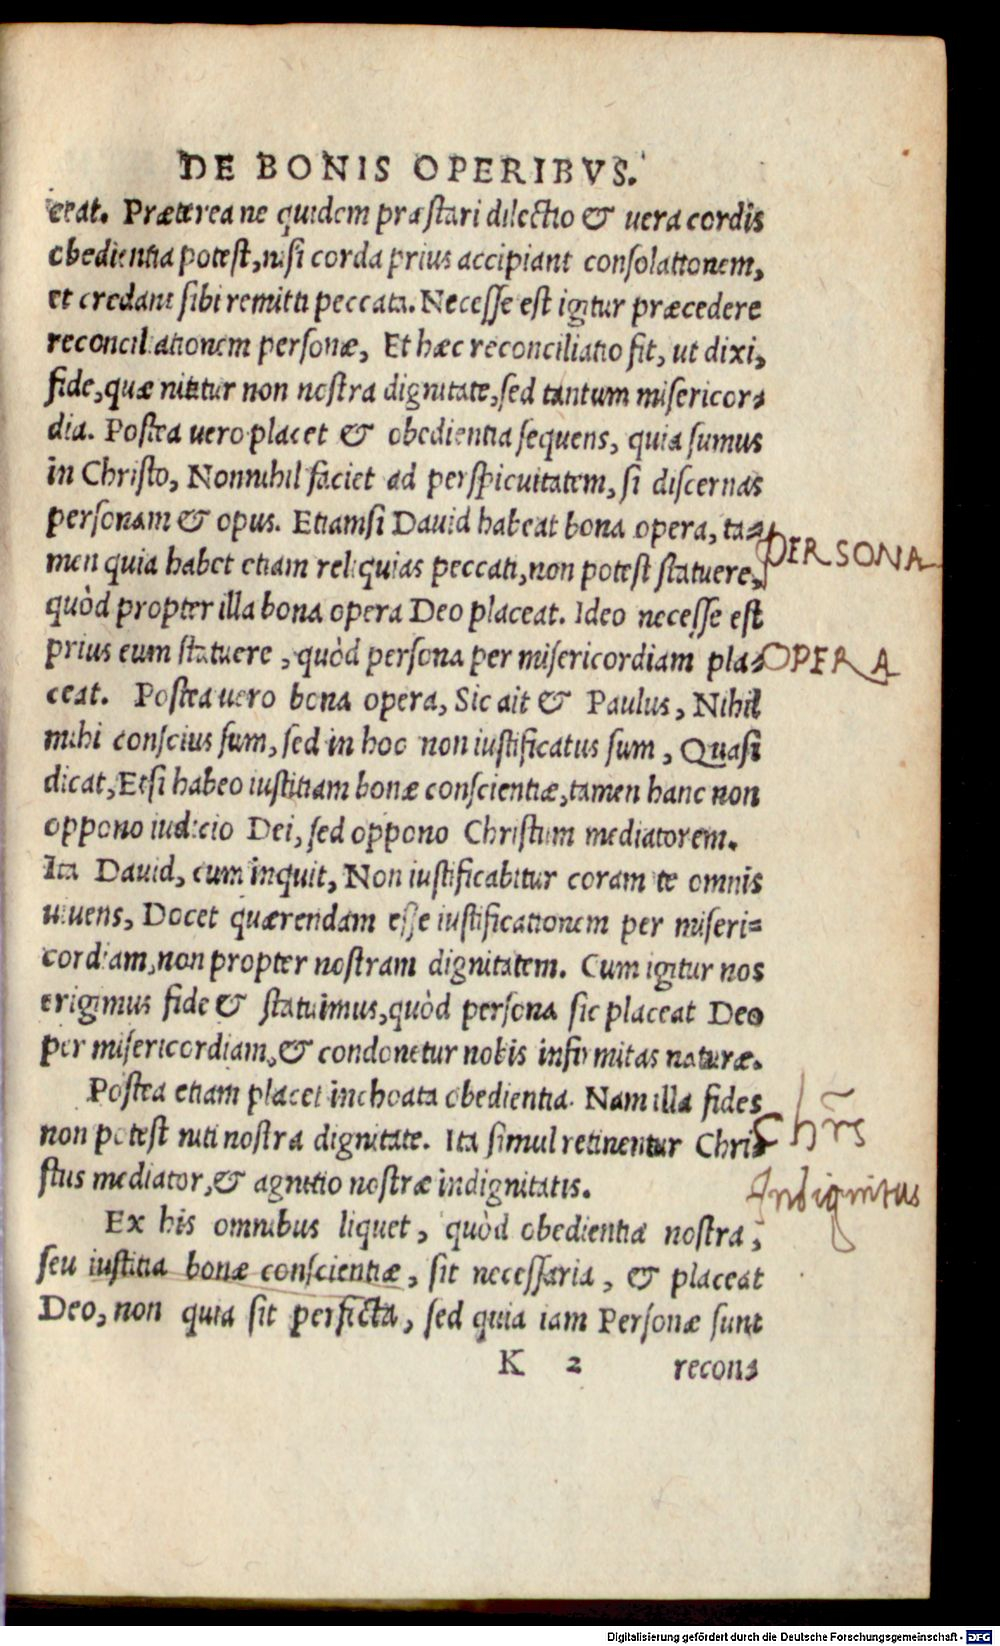 DE BONIS OPERIBVS.
ceat. Præterea ne quidem præstari dilectio & vera cordis
obedientia potest, nisi corda prius accipiant consolationem,
et credant sibi remitti peccata. Necesse est igitur præcedere
reconciliationem personæ, Et hæc reconciliatio fit, ut dixi,
fide, quæ nititur non nostra dignitate, sed tantum misericor=
dia. Postea vero placet & obedientia sequens, quia sumus
in Christo, Nonnihil faciet ad perspicuitatem, si discernas
personam & opus. Etiamsi David habeat bona opera, ta=
PERSONA
men quia habet etiam reliquias peccati, non potest statuere,
quòd propter illa bona opera Deo placeat. Ideo necesse est
prius eum statuere, quòd persona per misericordiam pla=
OPERA
ceat. Postea vero bona opera, Sic ait & Paulus, Nihil
mihi conscius sum, sed in hoc non iustificatus sum, Quasi
dicat, Etsi habeo iustitiam bonæ conscientiæ, tamen hanc non
oppono iudicio Dei, sed oppono Christum mediatorem.
Ita David, cum inquit, Non iustificabitur coram te omnis
uiuens, Docet quærendam esse iustificationem per miseri=
cordiam, non propter nostram dignitatem. Cum igitur nos
erigimus fide & statuimus, quòd persona sic placeat Deo
per misericordiam, & condonetur nobis infirmitas naturæ.
Postea etiam placet inchoata obedientia. Nam illa fides
non potest niti nostra dignitate. Ita simul retinentur Chri=
Chrs̃
stus mediator, & agnitio nostræ indignitatis.
Indignitas
Ex his omnibus liquet, quòd obedientia nostra,
seu iustitia bonæ conscientiæ, sit necessaria, & placeat
Deo, non quia sit perfecta, sed quia iam Personæ sunt
K 2 recon=
Digitalisierung gefördert durch die Deutsche Forschungsgemeinschaft - DFG